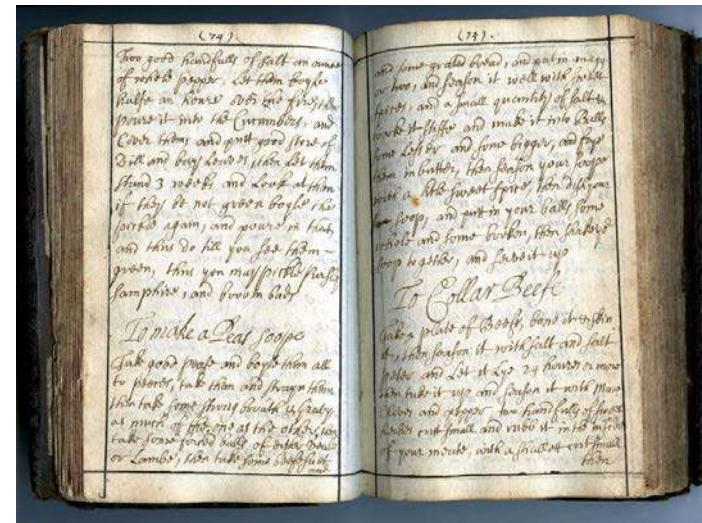 (74).
Two good handfulls of salt an ounce
of whole pepper, Let them boyle
halfe an houre over the fire, then
poure it into the Cucumbers, and
Cover them and putt good store of
Dill and bay Leaves, then Let them
stand 3 weeks and Look at them
if they be not green boyle the
pickle again, and poure in that
and thus do till you see them
green, thus you may pickle
samphire, and broom buds
To make a Peas soope
Take good pease and boyle them all
to peeces, take them and strayn them
then take some strong broath & gravy
as much of the one as the other, then
take some forced balls of either
or Lambe, then take some beefe suett
and
(75).
and some grated bread, and put in an egg
or two, and season it well with sweet
spices, and a small quantity of salt
worke it stiffe and make it into Balls
some Lesser and some bigger, and frye
them in butter, then season your soope
with a little sweet spice, then dish your
soop, and putt in your balls some
whole and some broken, then shake
soop together, and serve it up
To Collar Beefe
Take a plate of Beefe, bone it
it, then season it with salt and salt
peter and Let it Lye 24 houres or more
then take it up and season it with Mace
Cloves and pepper two handfulls of sweet
herbes cutt small, and rubb it in the inside
of your meate, with a shallott cutt small
then